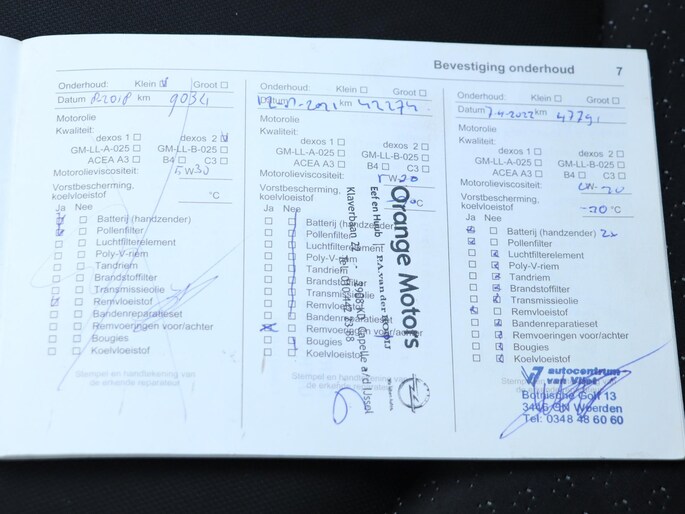 Bevestiging onderhoud 7
Onderhoud: Klein Groot
Datum 2018 km 9034
Motorolie
Kwaliteit:
dexos 1 dexos 2
GM-LL-A-025 GM-LL-B-025
ACEA A3 B4 C3
Motorolieviscositeit: 5W30
Vorstbescherming,
koelvloeistof °C
Ja Nee
Batterij (handzender)
Pollenfilter
Luchtfilterelement
Poly-V-riem
Tandriem
Brandstoffilter
Transmissieolie
Remvloeistof
Bandenreparatieset
Remvoeringen voor/achter
Bougies
Koelvloeistof
Stempel en handtekening van
de erkende reparateur
Onderhoud: Klein Groot
Datum 2021 km 42274
Motorolie
Kwaliteit:
dexos 1 dexos 2
GM-LL-A-025 GM-LL-B-025
ACEA A3 B4 C3
Motorolieviscositeit:
Vorstbescherming,
koelvloeistof °C
Ja Nee
Batterij (handzender)
Pollenfilter
Luchtfilterelement
Poly-V-riem
Tandriem
Brandstoffilter
Transmissieolie
Remvloeistof
Bandenreparatieset
Remvoeringen voor/achter
Bougies
Koelvloeistof
Stempel en handtekening van
de erkende reparateur
Orange Motors
Eef en Huub P.A. van der
Klaverbaan 22 - 2908 KD Capelle a/d IJssel
Onderhoud: Klein Groot
Datum 7-4-2022 km 47791
Motorolie
Kwaliteit:
dexos 1 dexos 2
GM-LL-A-025 GM-LL-B-025
ACEA A3 B4 C3
Motorolieviscositeit: 0W-20
Vorstbescherming,
koelvloeistof -70 °C
Ja Nee
Batterij (handzender) 2x
Pollenfilter
Luchtfilterelement
Poly-V-riem
Tandriem
Brandstoffilter
Transmissieolie
Remvloeistof
Bandenreparatieset
Remvoeringen voor/achter
Bougies
Koelvloeistof
autocentrum
van Vliet
Botnische Golf 13
3446 CN Woerden
Tel: 0348 48 60 60